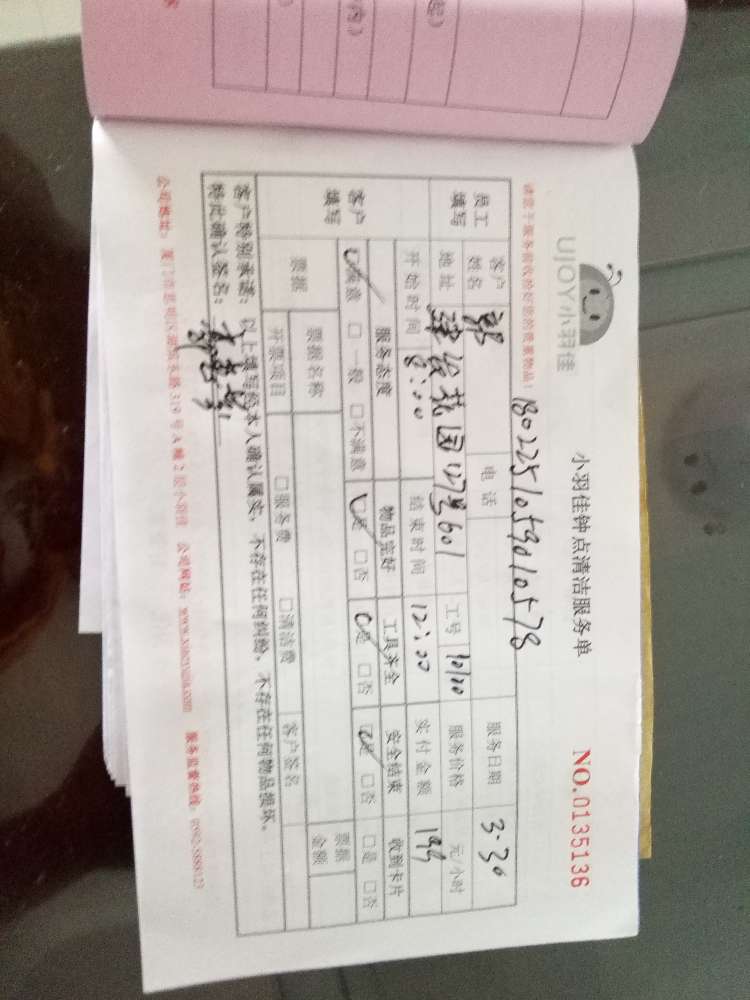 UJOY小羽佳
小羽佳钟点清洁服务单
NO.0135136
1802251059010578
员工填写 客户姓名 郭 电话 服务日期 3.30
地址 建设花园27号601 工号 1010 服务价格 元/小时
开始时间 8:00 结束时间 12:00 实付金额
客户填写 服务态度 物品完好 工具齐全 安全结束 收到卡片
☑满意 □一般 □不满意 ☑是 □否 ☑是 □否 ☑是 □否 □是 □否
票据 票据名称 票据金额
开票项目 □服务费 □清洁费 客户签名
客户特别承诺：以上填写经本人确认属实，不存在任何纠纷，不存在任何物品损坏。
特此确认签名：
公司地址：厦门市思明区湖滨东路319号A幢2层小羽佳 公司网址：www.xiaoyujia.com 服务监督热线：0592-5888123